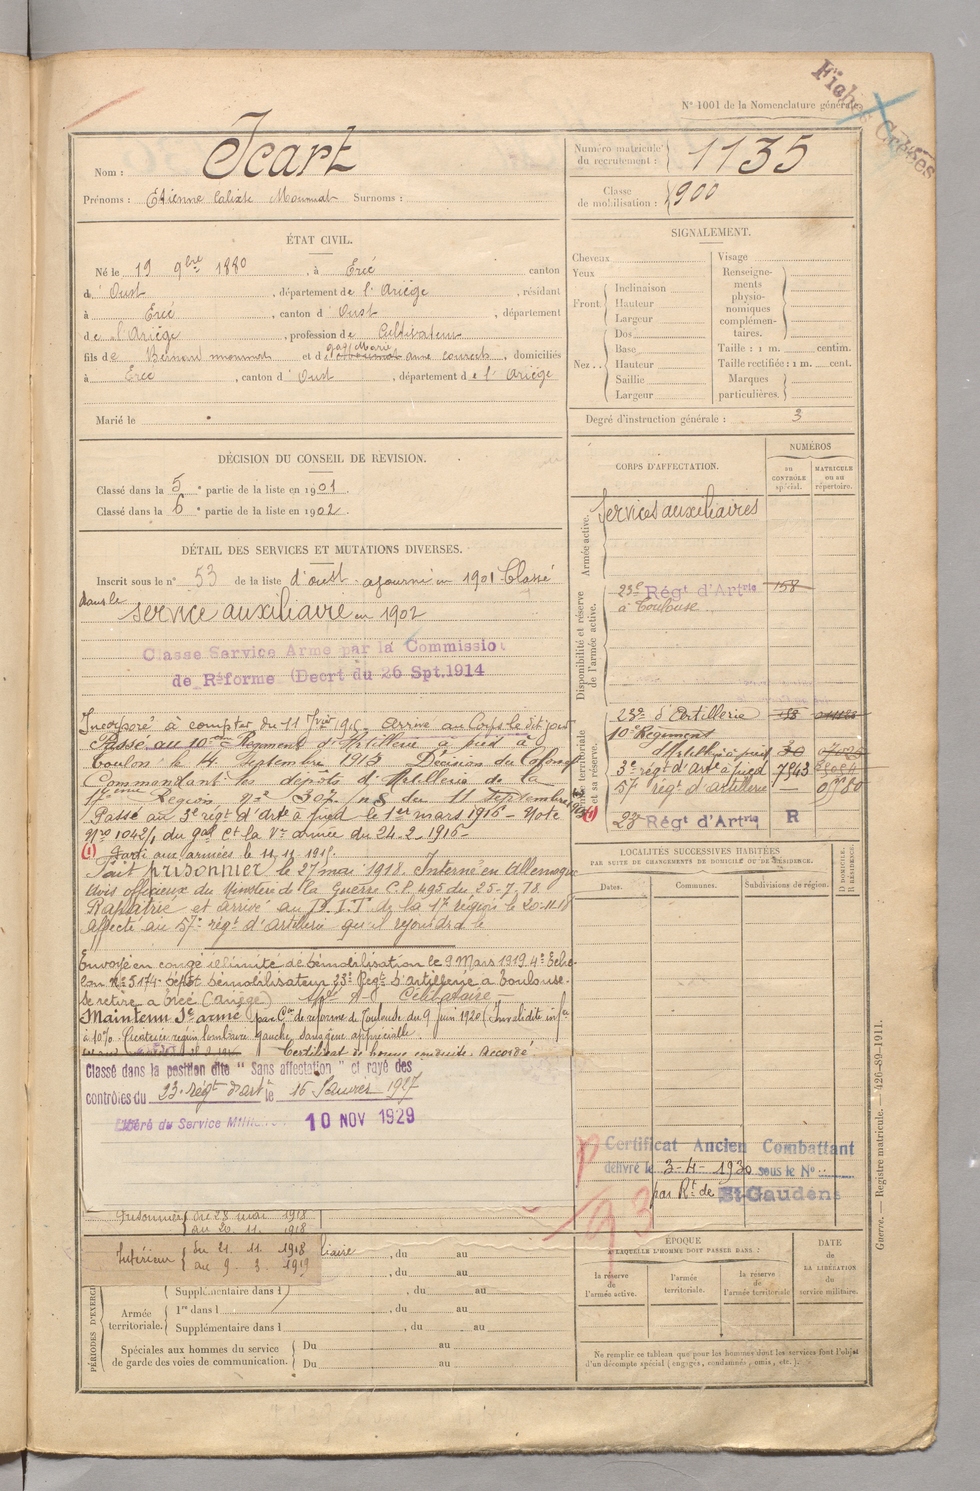 N° 1001 de la Nomenclature générale.
Fiche Créées
Nom : Icart
Prénoms : Etienne Calixte Surnoms :
Numéro matricule du recrutement : 1135
Classe de mobilisation : 1900
ÉTAT CIVIL.
Né le 19 9bre 1880, à Ercé canton
d' Oust, département de l'Ariège, résidant
à Ercé, canton d' Oust, département
de l'Ariège, profession de Cultivateur
fils de Bernard et d anne, domiciliés
à Ercé, canton d' Oust, département de l'Ariège
Marié le
SIGNALEMENT.
Cheveux
Yeux
Front Inclinaison
Hauteur
Largeur
Nez .. Dos
Base
Hauteur
Saillie
Largeur
Visage
Renseignements physionomiques complémentaires.
Taille : 1 m. centim.
Taille rectifiée : 1 m. cent.
Marques particulières.
Degré d'instruction générale : 3
DÉCISION DU CONSEIL DE REVISION.
Classé dans la 5e partie de la liste en 1901.
Classé dans la 6e partie de la liste en 1902.
DÉTAIL DES SERVICES ET MUTATIONS DIVERSES.
Inscrit sous le n° 53 de la liste d'oust. ajourné en 1901 Classé
dans le service auxiliaire en 1902
Classe Service Armé par la Commission
de Réforme (Decrt du 26 Spt.1914
Incorporé à compter du 11 Arrivé au Corps le dit jour
Passé au 10me Régiment d'Artillerie à pied à
Toulon le 14 Septembre 1915 Décision du Colonel
Commandant les dépôts d'Artillerie de la
17ème Région, n° 307 du 11 Septembre
Passé au 3e régt d'arte à pied le 1er mars 1916 - Note
du gal Ct la Ve armée du 24-2-1916-
(1) Parti aux armées le 11.11.1915.
Fait prisonnier le 27 mai 1918. Interné en Allemagne
Avis officieux du Ministère de la Guerre C.P. 495 du 25-7-18.
Rapatrié et arrivé au D.I.T. de la 17e région le 20-11-18
Affecté au 57e régt d'artillerie qu'il rejoindra le
Envoyé en congé illimité de démobilisation le 9 Mars 1919 4e Echelon
N° 5174 dépôt démobilisateur 23e Regt d'artillerie à Toulouse.
Se retire a Ercé (Ariège) Célibataire
Maintenu Sce armé par Con de réforme de Toulouse du 9 juin 1920 (Invalidité infre
à 10% Cicatrice région lombaire gauche, sans gêne appréciable.
Certificat de bonne conduite. Accordé.
Classé dans la position dite " Sans affectation " et rayé des
contrôles du 23e régt d'art le 15 Janvier 1927
Libéré du Service Militaire 10 NOV 1929
Prisonnier du 28 mai 1918
au 20. 11. 1918
Intérieur du 21. 11. 1918
au 9. 3. 1919
CORPS D'AFFECTATION.
NUMÉROS
au CONTRÔLE spécial.
MATRICULE ou au répertoire.
Armée active.
Services auxiliaires
Disponibilité et réserve de l'armée active.
23e Régt d'Artrie à Toulouse 158
Armée territoriale et sa réserve.
23e d'Artillerie
10e Régiment d'Artillie à pied
3e régt d'Arte à pied 7943
57e régt d'artillerie 01780
(1) 23e Régt d'Artrie R
LOCALITÉS SUCCESSIVES HABITÉES
PAR SUITE DE CHANGEMENTS DE DOMICILE OU DE RÉSIDENCE.
Dates. Communes. Subdivisions de région. D DOMICILE. R RÉSIDENCE.
Certificat Ancien Combattant
délivré le 3-4-1930 sous le N°
par Rt de St Gaudens
P
93
PÉRIODES D'EXERCI
liaire, du au
, du au
Supplémentaire dans l , du au
Armée territoriale. 1re dans l , du au
Supplémentaire dans l , du au
Spéciales aux hommes du service de garde des voies de communication. Du au
Du au
ÉPOQUE
À LAQUELLE L'HOMME DOIT PASSER DANS :
la réserve de l'armée active.
l'armée territoriale.
la réserve de l'armée territoriale
DATE de LA LIBÉRATION du service militaire.
Ne remplir ce tableau que pour les hommes dont les services font l'objet
d'un décompte spécial (engagés, condamnés, omis, etc.).
Guerre. — Registre matricule. — 426-89-1911.